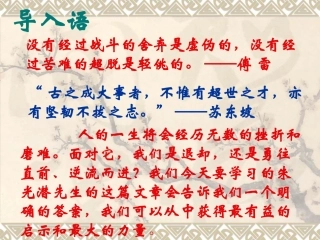 导入语
没有经过战斗的舍弃是虚伪的，没有经
过苦难的超脱是轻佻的。 ——傅 雷
“ 古之成大事者，不惟有超世之才，亦
有坚韧不拔之志。” ——苏东坡
人的一生将会经历无数的挫折和
磨难。面对它，我们是退却，还是勇往
直前、逆流而进？我们今天要学习的朱
光潜先生的这篇文章会告诉我们一个明
确的答案，我们可以从中获得最有益的
启示和最大的力量